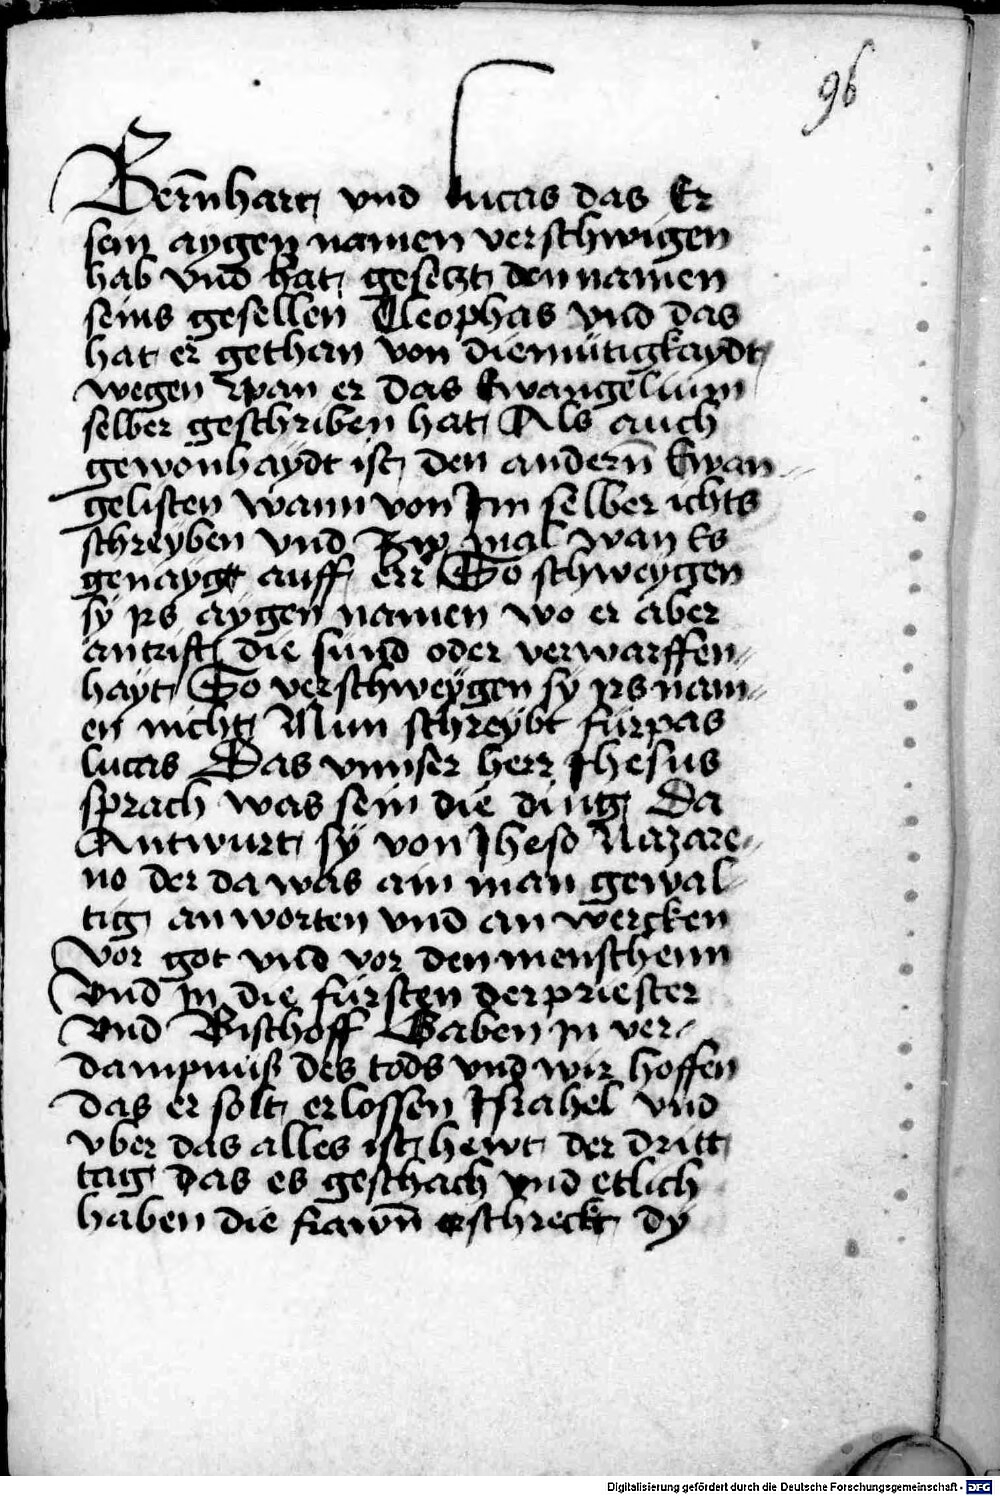 96
Bern̄hart und lucas das Er
sein aygen namen verschwigen
hab vnd hat gesetzt den namen
seins gesellen Cleophas vnd das
hat er gethan von diemütigkaydt
wegen wan er das Ewangelium
selber geschriben hat Als auch
gewonhaydt ist den andern̄ Ewan-
gelisten wann von Im selber ichts
schreyben vnd mal wan Es
genaygt auff err So schweygen
sÿ yrs aÿgen namen wo er aber
antrift die sünd oder verwarffen-
hayt So verschweÿgen sÿ yrs nam-
en nicht Nun schreÿbt fürpas
lucas Das vnnser herr Jhesus
sprach was sein die ding Da
Antwurt sÿ von Jheso Nazare-
no der da was ain man gewal-
tig an worten vnd an wercken
vor got vnd vor den menschenn
vnd in die fürsten der priester
vnd Bischoff Gaben in ver-
dampnuß des tods vnd wir hoffen
das er solt erlossen Israhel vnd
vber das alles ist hewt der dritt
tag das es geschach vnd etlich
haben die frawn̄ erschreckt dÿ
Digitalisierung gefördert durch die Deutsche Forschungsgemeinschaft - DFG